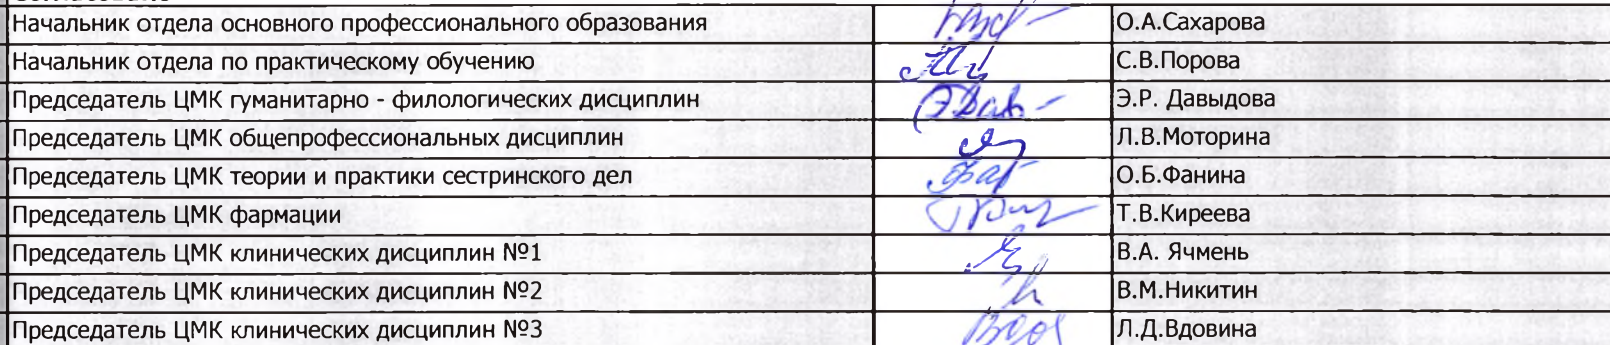 Начальник отдела основного профессионального образования О.А.Сахарова
Начальник отдела по практическому обучению С.В.Порова
Председатель ЦМК гуманитарно - филологических дисциплин Э.Р. Давыдова
Председатель ЦМК общепрофессиональных дисциплин Л.В.Моторина
Председатель ЦМК теории и практики сестринского дел О.Б.Фанина
Председатель ЦМК фармации Т.В.Киреева
Председатель ЦМК клинических дисциплин №1 В.А. Ячмень
Председатель ЦМК клинических дисциплин №2 В.М.Никитин
Председатель ЦМК клинических дисциплин №3 Л.Д.Вдовина